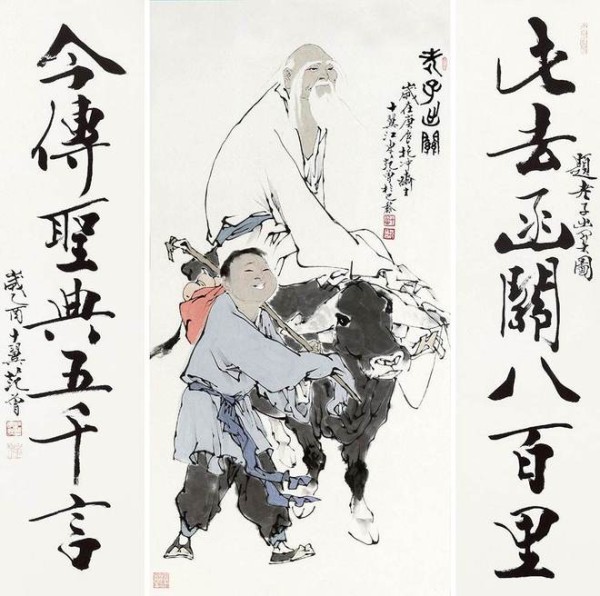 此去函關八百里
題老子出關圖
老子出關
歲在庚辰抱冲齋主
十翼江東范曾
今傳聖典五千言
歲乙酉十翼范曾